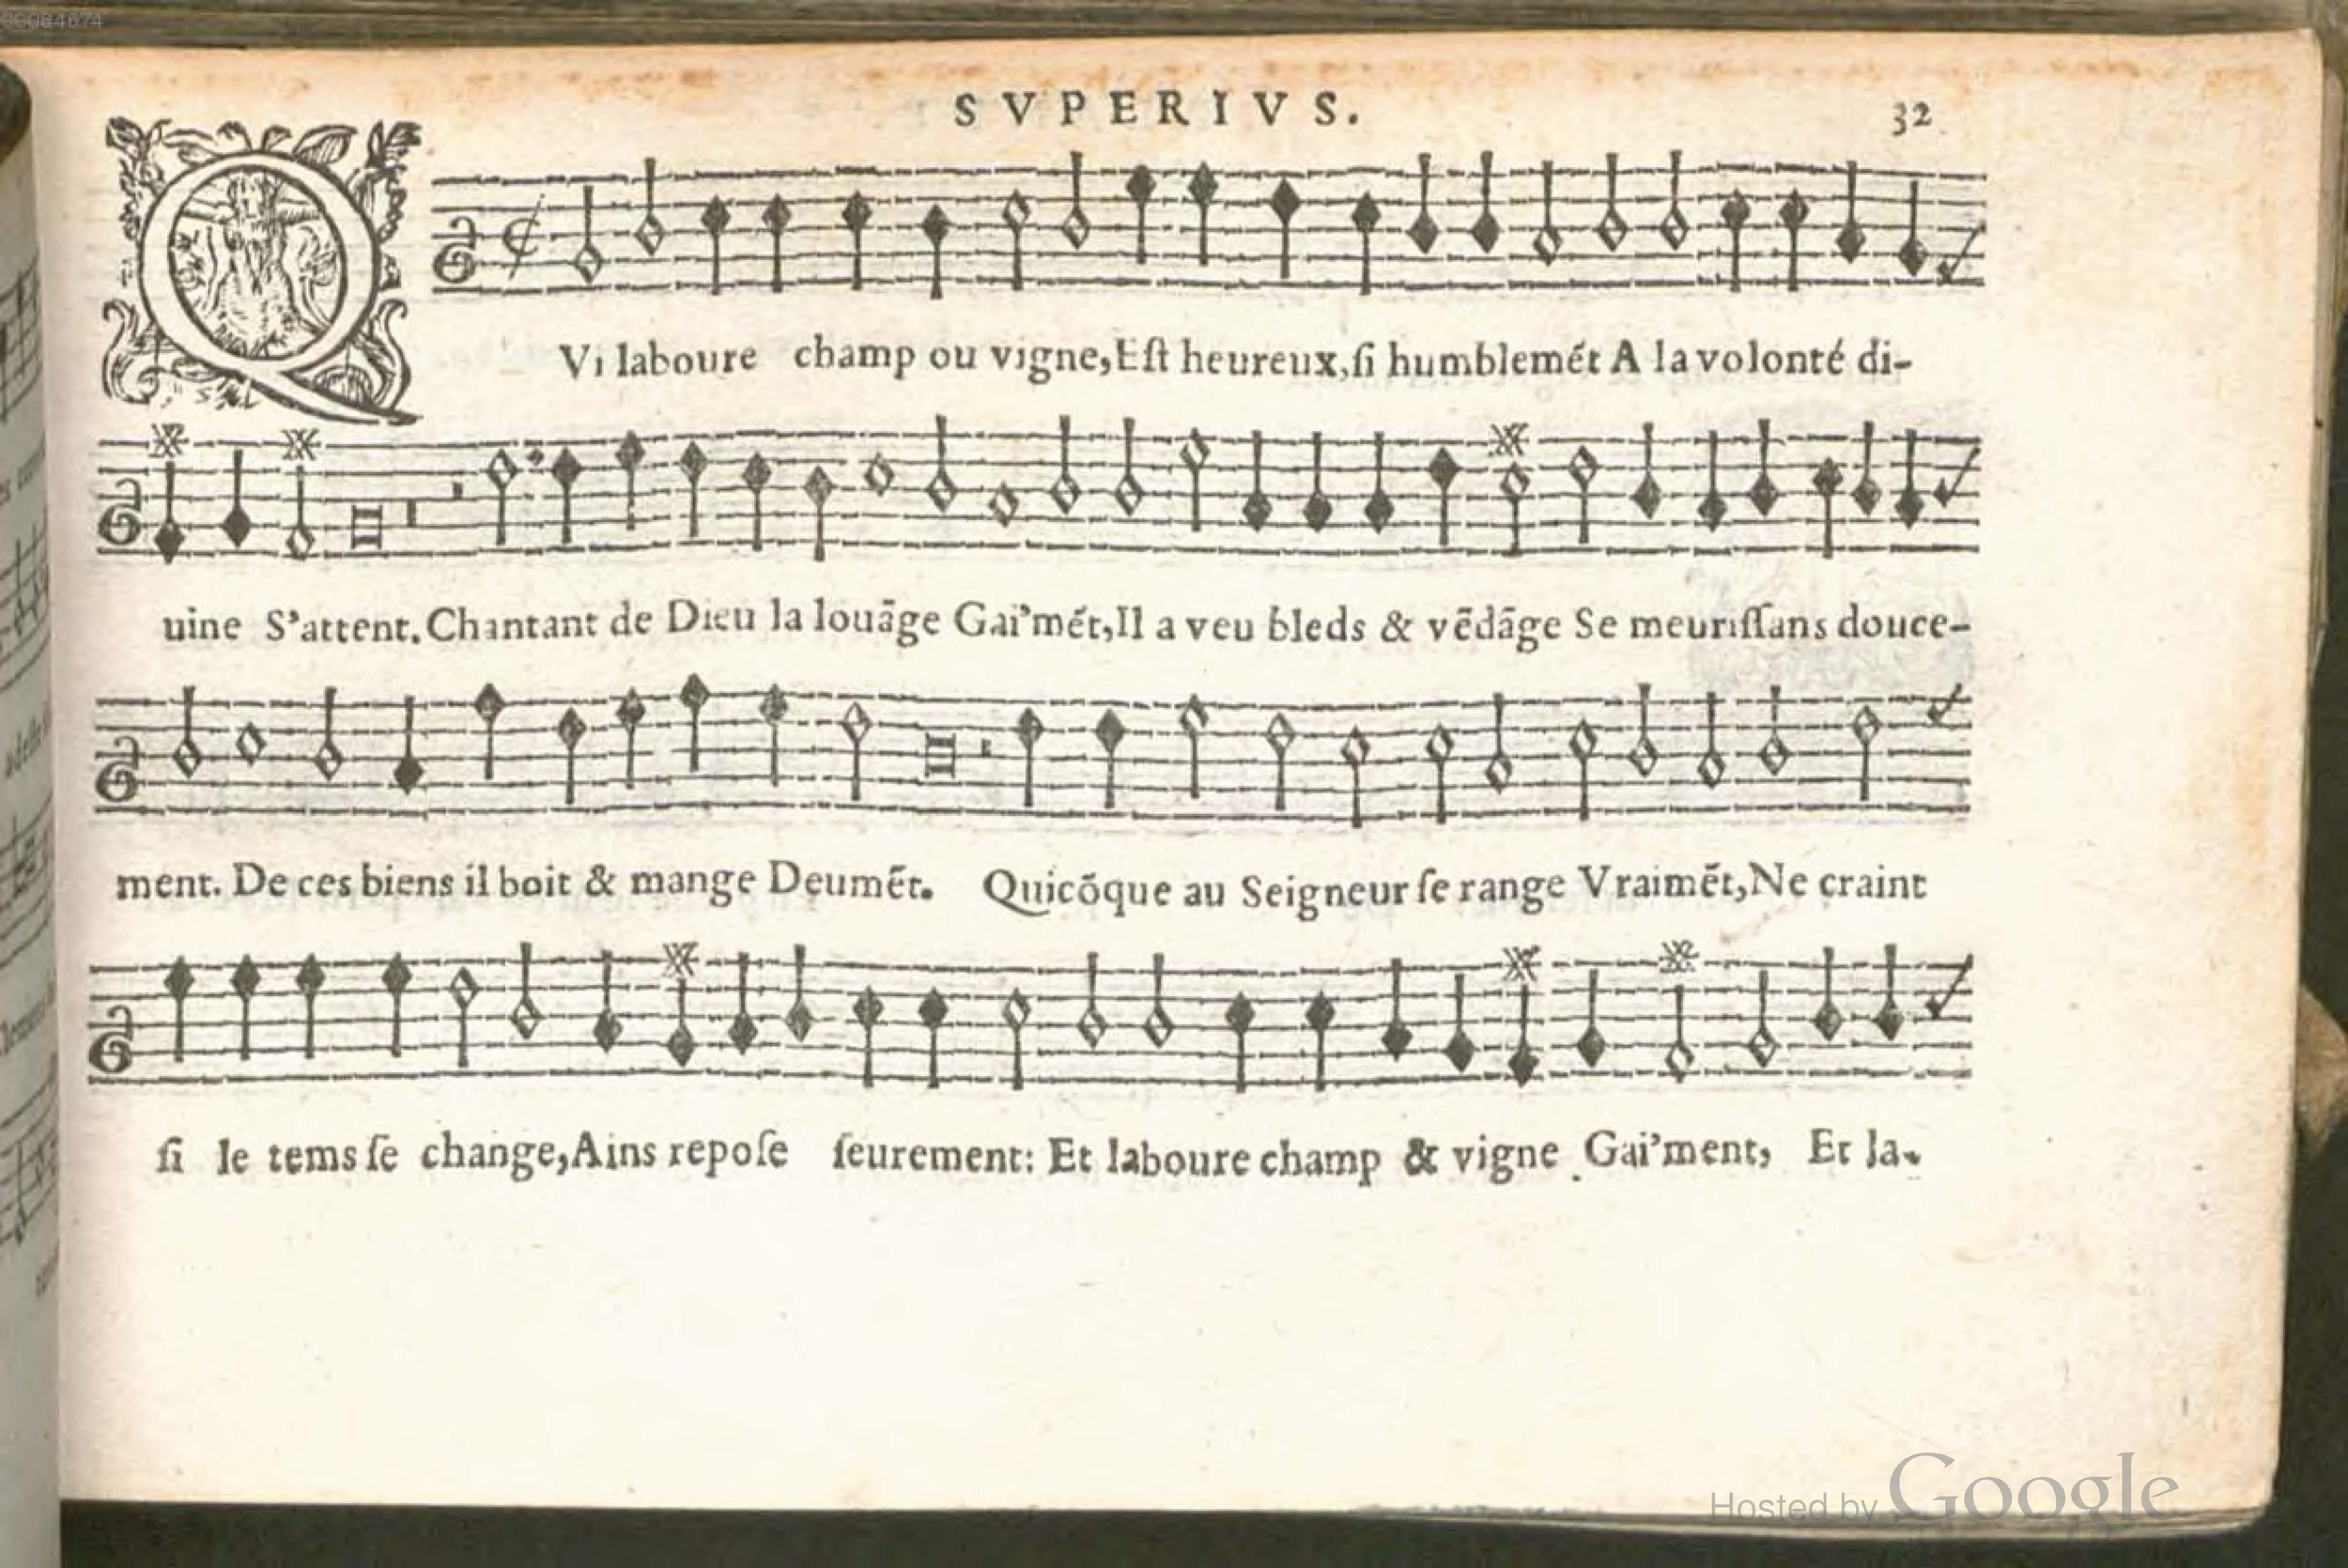 SVPERIVS.
32
QVi laboure champ ou vigne,Eſt heureux,ſi humblemẽt A la volonté di-
uine S'attent.Chantant de Dieu la louãge Gai'mẽt,Il a veu bleds & vẽdãge Se meuriſſans douce-
ment. De ces biens il boit & mange Deumẽt. Quicõque au Seigneur ſe range Vraimẽt,Ne craint
ſi le tems ſe change,Ains repoſe ſeurement: Et laboure champ & vigne Gai'ment, Et la-
Hosted by Google